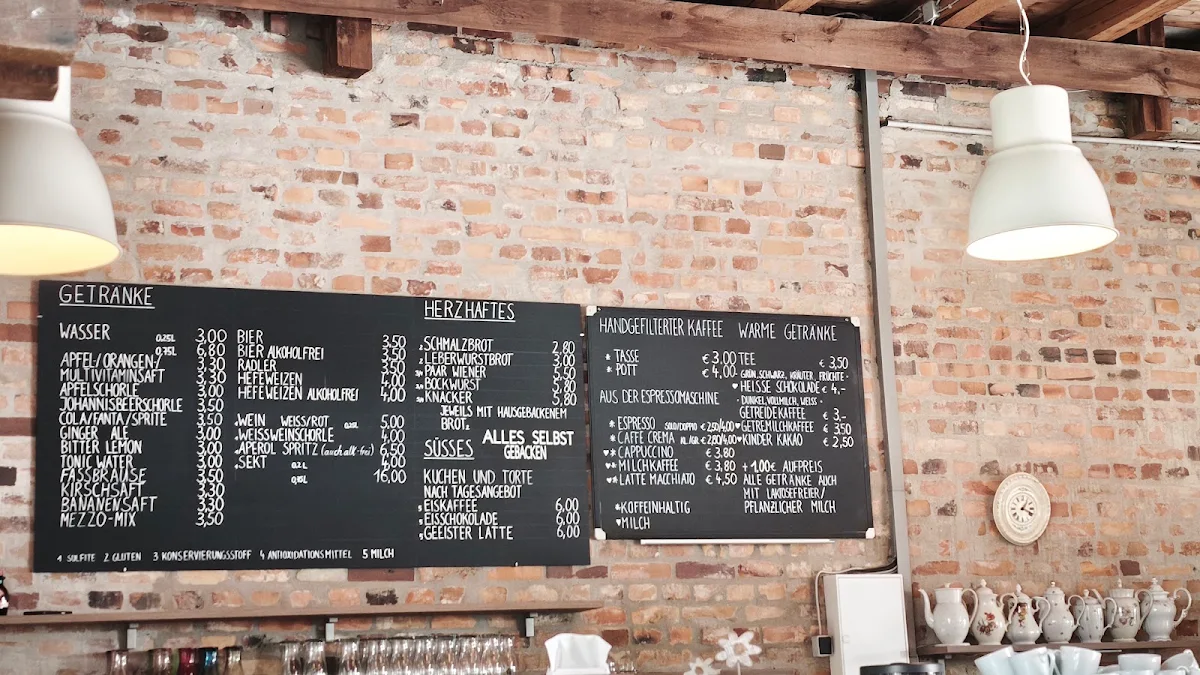 GETRÄNKE
WASSER 0,25L 3,00
0,75L 6,80
APFEL/ORANGEN/ 3,30
MULTIVITAMINSAFT 3,30
APFELSCHORLE 3,30
JOHANNISBEERSCHORLE 3,50
COLA/FANTA/SPRITE 3,50
GINGER ALE 3,00
BITTER LEMON 3,00
TONIC WATER 3,00
FASSBRAUSE 3,50
KIRSCHSAFT 3,50
BANANENSAFT 3,50
MEZZO-MIX 3,50
BIER 3,50
BIER ALKOHOLFREI 3,50
RADLER 3,50
HEFEWEIZEN 4,00
HEFEWEIZEN ALKOHOLFREI 4,00
WEIN WEISS/ROT 0,2L 5,00
WEISSWEINSCHORLE 4,00
APEROL SPRITZ (auch alk-frei) 6,50
SEKT 0,2L 4,00
16,00
HERZHAFTES
SCHMALZBROT 2,80
LEBERWURSTBROT 3,00
PAAR WIENER
BOCKWURST 5,80
KNACKER 5,80
JEWEILS MIT HAUSGEBACKENEM
BROT
SÜSSES ALLES SELBST
GEBACKEN
KUCHEN UND TORTE
NACH TAGESANGEBOT
EISKAFFEE 6,00
EISSCHOKOLADE 6,00
GEEISTER LATTE 6,00
1 SULFITE 2 GLUTEN 3 KONSERVIERUNGSSTOFF 4 ANTIOXIDATIONSMITTEL 5 MILCH
HANDGEFILTERTER KAFFEE
* TASSE € 3,00
* POTT € 4,00
AUS DER ESPRESSOMASCHINE
* ESPRESSO SOLO/DOPPIO € 2,50/4,00
* CAFFÈ CREMA KL./GR. € 2,80/4,00
♥* CAPPUCCINO € 3,80
♥* MILCHKAFFEE € 3,80
♥* LATTE MACCHIATO € 4,50
*KOFFEINHALTIG
♥MILCH
WARME GETRÄNKE
TEE € 3,50
GRÜN, SCHWARZ, KRÄUTER, FRÜCHTE
♥ HEISSE SCHOKOLADE € 4,-
DUNKEL, VOLLMILCH, WEISS
GETREIDEKAFFEE € 3,-
♥GETREMILCHKAFFEE € 3,50
♥KINDER KAKAO € 2,50
+ 1,00€ AUFPREIS
ALLE GETRÄNKE AUCH
MIT LAKTOSEFREIER/
PFLANZLICHER MILCH